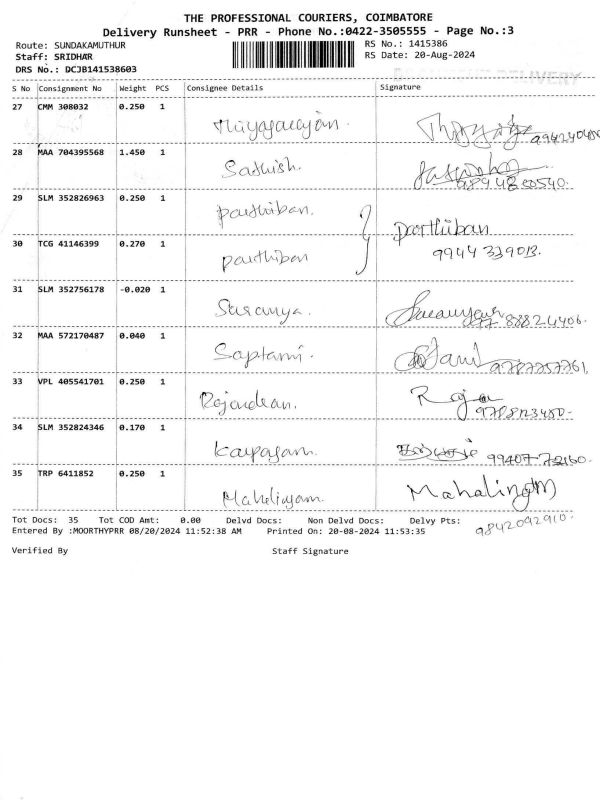 THE PROFESSIONAL COURIERS, COIMBATORE
Delivery Runsheet - PRR - Phone No.:0422-3505555 - Page No.:3
Route: SUNDAKAMUTHUR
Staff: SRIDHAR
DRS No.: DCJB141538603
RS No.: 1415386
RS Date: 20-Aug-2024
S No Consignment No Weight PCS Consignee Details Signature
27 CMM 308032 0.250 1
28 MAA 704395568 1.450 1 Sathish.
29 SLM 352826963 0.250 1 parthiban.
Parthiban
30 TCG 41146399 0.270 1 parthiban
9944 339013.
31 SLM 352756178 -0.020 1 Saranya.
32 MAA 572170487 0.040 1 Saptami.
9787757761
33 VPL 405541701 0.250 1 Raja
34 SLM 352824346 0.170 1
35 TRP 6411852 0.250 1 Mahalingam. MahalingM
9842092910.
Tot Docs: 35 Tot COD Amt: 0.00 Delvd Docs: Non Delvd Docs: Delvy Pts:
Entered By :MOORTHYPRR 08/20/2024 11:52:38 AM Printed On: 20-08-2024 11:53:35
Verified By Staff Signature